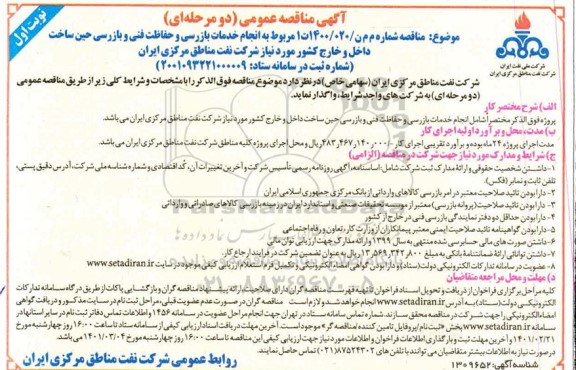 نوبت اول
آگهی مناقصه عمومی (دو مرحله‌ای)
شرکت ملی نفت ایران
شرکت نفت مناطق مرکزی ایران
موضوع: مناقصه شماره م م ن/۰۲۰/۱۴۰۰ت۱ مربوط به انجام خدمات بازرسی و حفاظت فنی و بازرسی حین ساخت
داخل و خارج کشور مورد نیاز شرکت نفت مناطق مرکزی ایران
(شماره ثبت در سامانه ستاد: ۲۰۰۱۰۹۳۲۲۱۰۰۰۰۰۹)
شرکت نفت مناطق مرکزی ایران (سهامی خاص) در نظر دارد موضوع مناقصه فوق الذکر را با مشخصات و شرایط کلی زیر از طریق مناقصه عمومی
(دو مرحله ای) به شرکت های واجد شرایط، واگذار نماید.
الف) شرح مختصر کار
پروژه فوق الذکر مختصراً شامل انجام خدمات بازرسی و حفاظت فنی و بازرسی حین ساخت داخل و خارج کشور مورد نیاز شرکت نفت مناطق مرکزی ایران می باشد.
ب) مدت، محل و برآورد اولیه اجرای کار
مدت اجرای پروژه ۲۴ ماه بوده و برآورد تقریبی اجرای کار ۴۸۳,۴۶۷,۱۴۰,۰۰۰ ریال می باشد و محل اجرای پروژه کلیه مناطق شرکت نفت مناطق مرکزی ایران می باشد.
ج) شرایط و مدارک مورد نیاز جهت شرکت در مناقصه (الزامی)
۱- داشتن شخصیت حقوقی و ارائه مدارک ثبت شرکت شامل: اساسنامه، آگهی روزنامه رسمی تأسیس شرکت و آخرین تغییرات آن، کد اقتصادی و شماره شناسه ملی شرکت، آدرس دقیق پستی،
تلفن ثابت و نمابر (فکس).
۲- دارا بودن تائید صلاحیت معتبر در امر بازرسی کالاهای وارداتی از بانک مرکزی جمهوری اسلامی ایران
۳- دارا بودن تائید صلاحیت (پروانه بازرسی) معتبر از موسسه تحقیقات صنعتی و استاندارد ایران در زمینه بازرسی کالاهای صادراتی و وارداتی
۴- دارا بودن حداقل دو دفتر نمایندگی بازرسی فنی در خارج از کشور
۵- دارا بودن گواهینامه تائید صلاحیت ایمنی معتبر پیمانکاران از وزارت کار، تعاون و رفاه اجتماعی
۶- داشتن صورت های مالی حسابرسی شده منتهی به سال ۱۳۹۹ و ارائه مدارک جهت ارزیابی توان مالی
۷- داشتن توانائی ارائه ضمانتنامه بانکی به مبلغ ۱۳,۵۶۹,۳۴۲,۸۰۰ ریال به عنوان تضمین شرکت در فرآیند ارجاع کار.
۸- عضویت در سامانه تدارکات الکترونیکی دولت (ستاد) و دارا بودن گواهی امضاء الکترونیکی و تکمیل فرم استعلام ارزیابی کیفی موجود در سایت www.setadiran.ir
د) مهلت و محل مراجعه متقاضیان
کلیه مراحل برگزاری فراخوان از دریافت و تحویل اسناد فراخوان
الکترونیکی دولت (ستاد) به آدرس www.setadiran.ir انجام خواهد شد و لازم است مناقصه گران در صورت عدم عضویت قبلی، مراحل ثبت نام در سایت مذکور و دریافت گواهی
امضاء الکترونیکی را جهت شرکت در مناقصه محقق سازند. شماره تماس سامانه ستاد در تهران جهت انجام مراحل عضویت در سامانه ۱۴۵۶ و اطلاعات تماس دفاتر ثبت نام در سایر استانها در
سامانه www.setadiran.ir بخش «ثبت نام/پروفایل تامین کننده/مناقصه گر» موجود است. آخرین مهلت دریافت اسناد ارزیابی کیفی از سامانه ستاد تا ساعت ۱۶:۰۰ روز چهارشنبه مورخ
۱۴۰۱/۰۲/۲۱ و آخرین مهلت ثبت و بارگذاری اطلاعات فراخوان و اطلاعات مورد نیاز ارزیابی کیفی این مناقصه تا ساعت ۱۶:۰۰ روز چهارشنبه مورخ ۱۴۰۱/۰۳/۰۴ می باشد.
در صورت نیاز به اطلاعات بیشتر متقاضیان می توانند با تلفن های ۸۷۵۲۴۳۰۲ (۰۲۱) تماس حاصل نمایند.
شناسه آگهی: ۱۳۰۹۶۵۲
روابط عمومی شرکت نفت مناطق مرکزی ایران